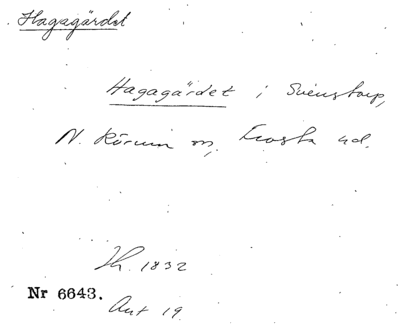 Hagagärdet
Hagagärdet i Svenstorp,
N. Rörum sn, Frosta hd.
Th. 1832
Nr 6643.
Aut 19